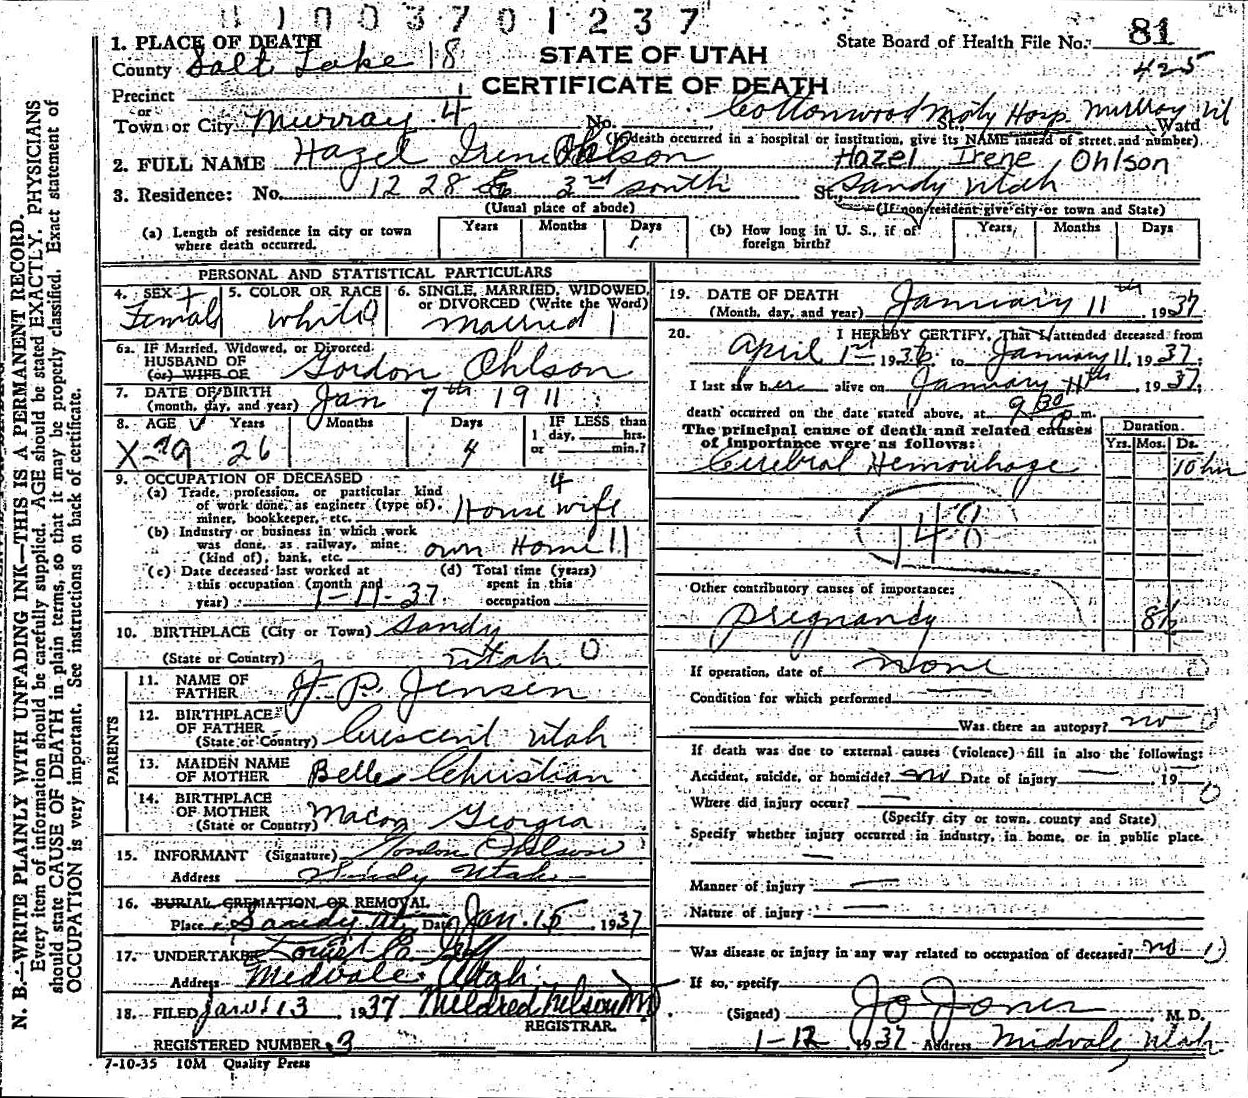 01003701237
1. PLACE OF DEATH
County Salt Lake 18
STATE OF UTAH
CERTIFICATE OF DEATH
State Board of Health File No. 81
425
Precinct
or
Town or City Murray 4 No. Cottonwood Hosp. Murray St., Ward
(If death occurred in a hospital or institution, give its NAME instead of street and number)
2. FULL NAME Hazel Irene Ohlson Hazel Irene Ohlson
3. Residence: No. 1228 E 3rd south St., Sandy Utah
(Usual place of abode) (If non-resident give city or town and State)
(a) Length of residence in city or town where death occurred. Years Months Days 1
(b) How long in U. S., if of foreign birth? Years Months Days
PERSONAL AND STATISTICAL PARTICULARS
4. SEX Female
5. COLOR OR RACE White
6. SINGLE, MARRIED, WIDOWED, or DIVORCED (Write the Word) Married
6a. IF Married, Widowed, or Divorced
HUSBAND OF
(or) WIFE OF Gordon Ohlson
7. DATE OF BIRTH
(month, day, and year) Jan 7th 1911
8. AGE Years 26 Months Days 4 IF LESS than
1 day, hrs.
or min.?
9. OCCUPATION OF DECEASED
(a) Trade, profession, or particular kind
of work done, as engineer (type of),
miner, bookkeeper, etc. Housewife
4
(b) Industry or business in which work
was done, as railway, mine
(kind of), bank, etc. own Home 11
(c) Date deceased last worked at
this occupation (month and
year) 1-11-37
(d) Total time (years)
spent in this
occupation
10. BIRTHPLACE (City or Town) Sandy
(State or Country) Utah 0
PARENTS
11. NAME OF
FATHER P. Jensen
12. BIRTHPLACE
OF FATHER
(State or Country) Crescent Utah
13. MAIDEN NAME
OF MOTHER Belle Christian
14. BIRTHPLACE
OF MOTHER
(State or Country) Macon Georgia
15. INFORMANT (Signature) Gordon Ohlson
Address Sandy Utah
16. BURIAL, CREMATION, OR REMOVAL
Place Sandy Ut. Date Jan. 15, 1937
17. UNDERTAKER
Address Midvale, Utah.
18. FILED Jan 13 1937 Mildred
REGISTRAR.
REGISTERED NUMBER 3
7-10-35 10M Quality Press
19. DATE OF DEATH
(Month, day, and year) January 11th, 1937
20. I HEREBY CERTIFY, That I attended deceased from
April 1st, 1936 to January 11, 1937;
I last saw her alive on January 11th, 1937;
death occurred on the date stated above, at 9 30 p. m.
The principal cause of death and related causes
of importance were as follows:
Duration.
Yrs. Mos. Ds.
Cerebral Hemorrhage 10 hrs
148
Other contributory causes of importance:
pregnancy 8½
If operation, date of None
Condition for which performed
Was there an autopsy? no 0
If death was due to external causes (violence) fill in also the following:
Accident, suicide, or homicide? no Date of injury 19
Where did injury occur? 0
(Specify city or town, county and State)
Specify whether injury occurred in industry, in home, or in public place.
Manner of injury
Nature of injury
Was disease or injury in any way related to occupation of deceased? no
If so, specify
(Signed) Jo Jones, M. D.
1-12, 1937 Address Midvale, Utah
N. B.—WRITE PLAINLY WITH UNFADING INK—THIS IS A PERMANENT RECORD.
Every item of information should be carefully supplied. AGE should be stated EXACTLY. PHYSICIANS
should state CAUSE OF DEATH in plain terms, so that it may be properly classified. Exact statement of
OCCUPATION is very important. See instructions on back of certificate.